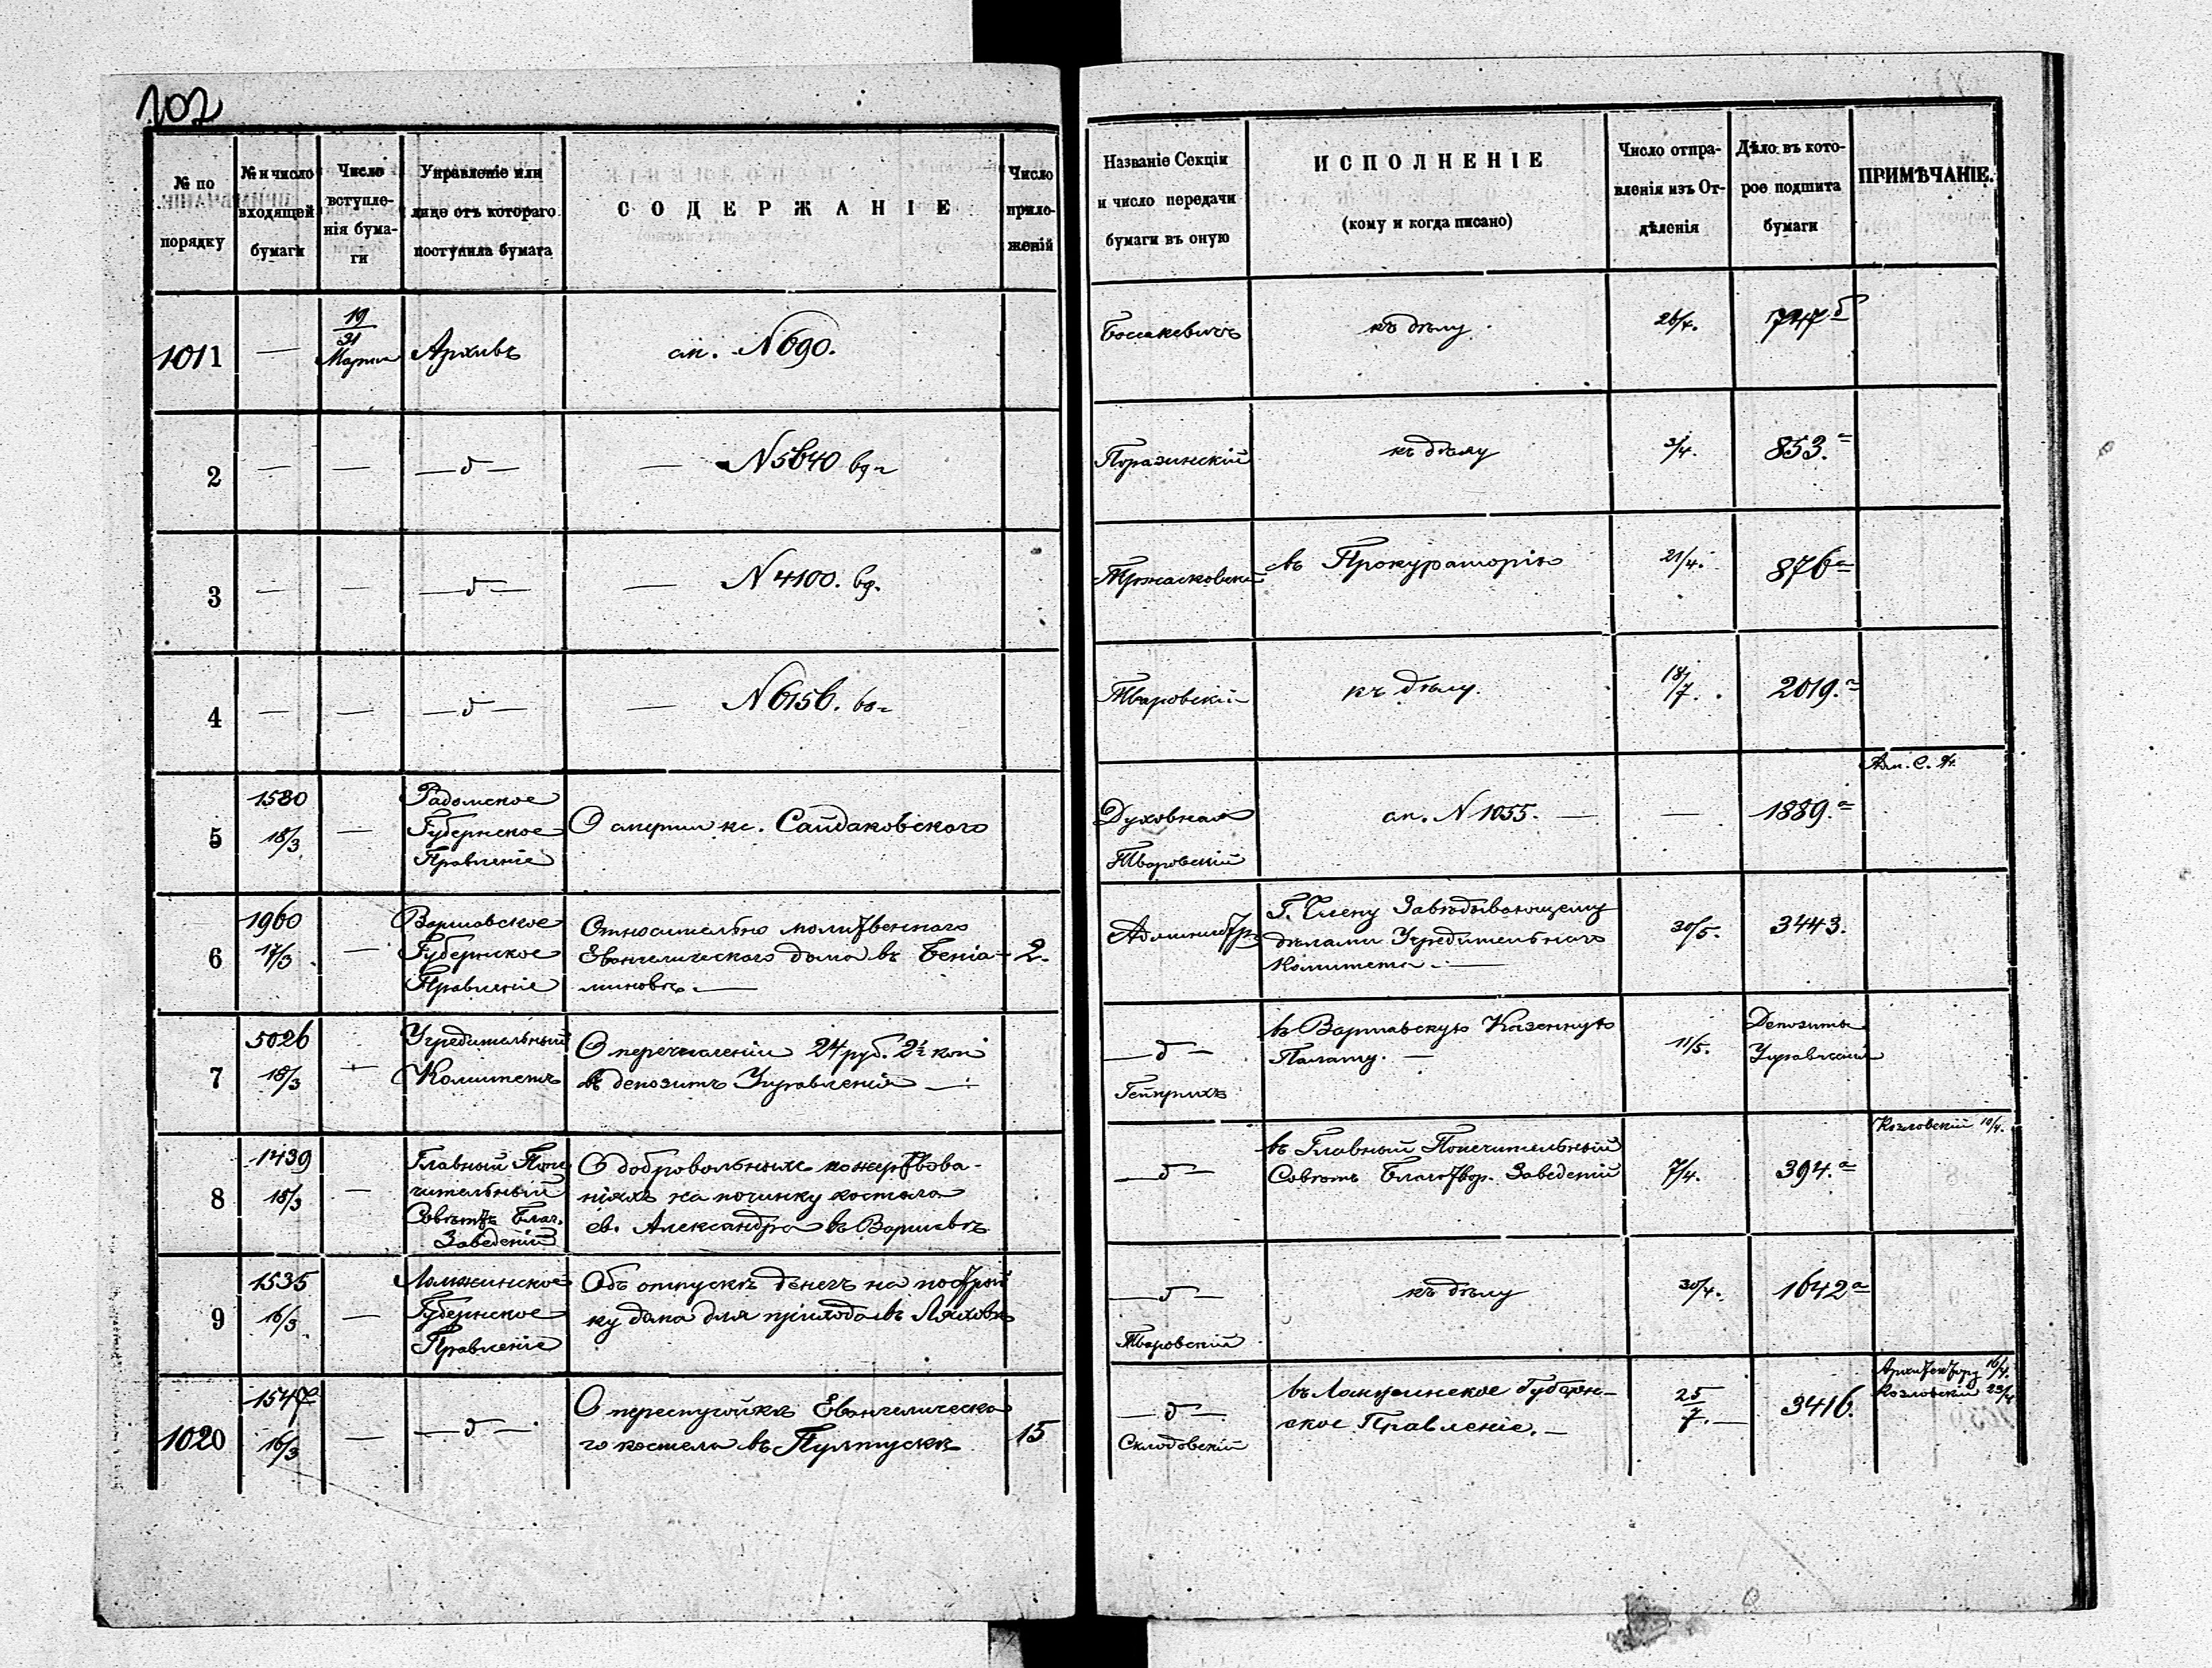 102
№ по порядку
№ и число входящей бумаги
Число вступле-нія бума-ги
Управленіе или лице отъ котораго поступила бумага
СОДЕРЖАНІЕ
Число прило-женій
Названіе Секціи и число передачи бумаги въ оную
ИСПОЛНЕНІЕ
(кому и когда писано)
Число отпра-вленія изъ От-дѣленія
Дѣло въ кото-рое подшита бумаги
ПРИМѢЧАНІЕ.
1011 — 19/31 Марта Архивъ ап. N 690. къ дѣлу. 26/4. 747 б
2 — — — д — — N 5640 Поразинскій къ дѣлу 3/4. 853. а
3 — — — д — — N 4100. въ Прокураторію 21/4. 876 а
4 — — — д — — N 6156. Тваровскій къ дѣлу. 18/7. 2019. а
5 1580 18/3 — Радомское Губернское Правленіе
О смерти кс. Сайдаковскаго
Духовная Тваровскій
ап. N 1055. — — 1889. а
6 1960 17/3 — Варшавское Губернское Правленіе
Относительно молитвеннаго
Евангелическаго дома въ Беніа-
миновѣ. — 2.
Г. Члену Завѣдывающему
дѣлами Учредительнаго
Комитета. — 30/5. 3443.
7 5026 18/3 — Учредительный Комитетъ
О перечисленіи 24 руб. 2½ коп
въ депозитъ Управленія —
— д — Гейнрихъ
въ Варшавскую Казенную
Палату. — 11/5. Депозиты Управленія
8 1439 18/3 — Главный Попе
чительный
Совѣтъ Благ.
Заведеній
О добровольныхъ пожертвова-
ніяхъ на починку костела
св. Александра въ Варшавѣ
— д —
въ Главный Попечительный
Совѣтъ Благотвор. Заведеній 7/4. 394. а
Козловскій 10/4.
9 1535 16/3 — Ломжинское Губернское Правленіе
Объ отпускѣ денегъ на построй
ку дома для прихода въ Ляховѣ
— д — Тваровскій
къ дѣлу 30/4. 1642 а
1020 1547 16/3 — — д —
О перестройкѣ Евангелическа
го костела въ Пултускѣ 15
— д — Склодовскій
въ Ломжинское Губерн-
ское Правленіе. — 25/7. — 3416.
Архитектору 16/4.
Козловскій 23/4